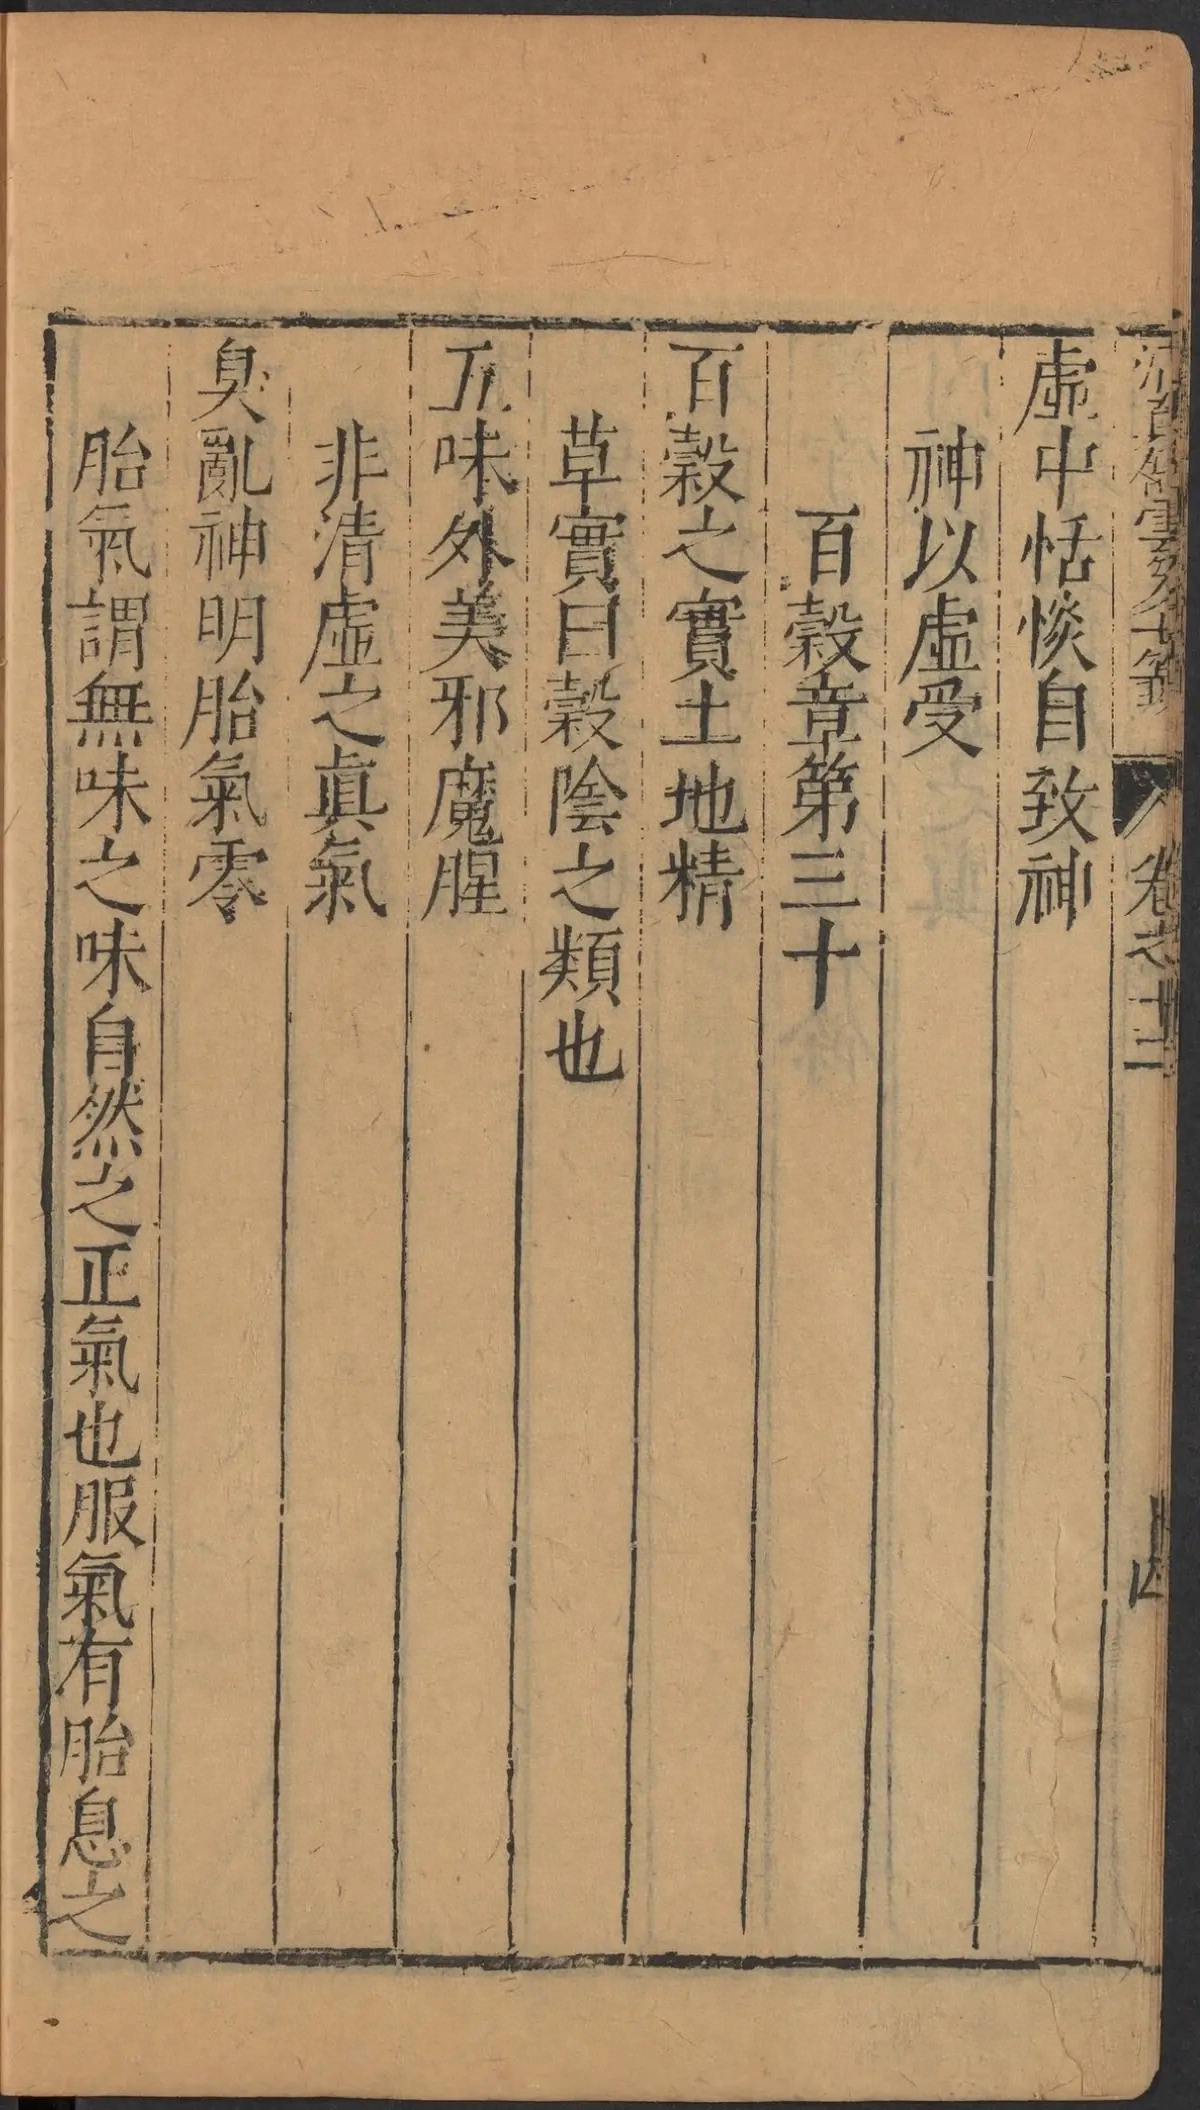 清真館雲笈七籤 卷之十二 四
虛中恬惔自致神
神以虛受
百穀章第三十
百穀之實土地精
草實曰穀陰之類也
五味外美邪魔腥
非清虛之眞氣
臭亂神明胎氣零
胎氣謂無味之味自然之正氣也服氣有胎息之